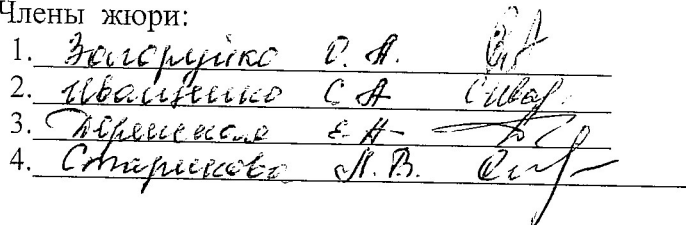 Члены жюри:
1. Загоруйко О. А.
2. Иванченко С А
3. Е. Н.
4. Старикова Л. В.